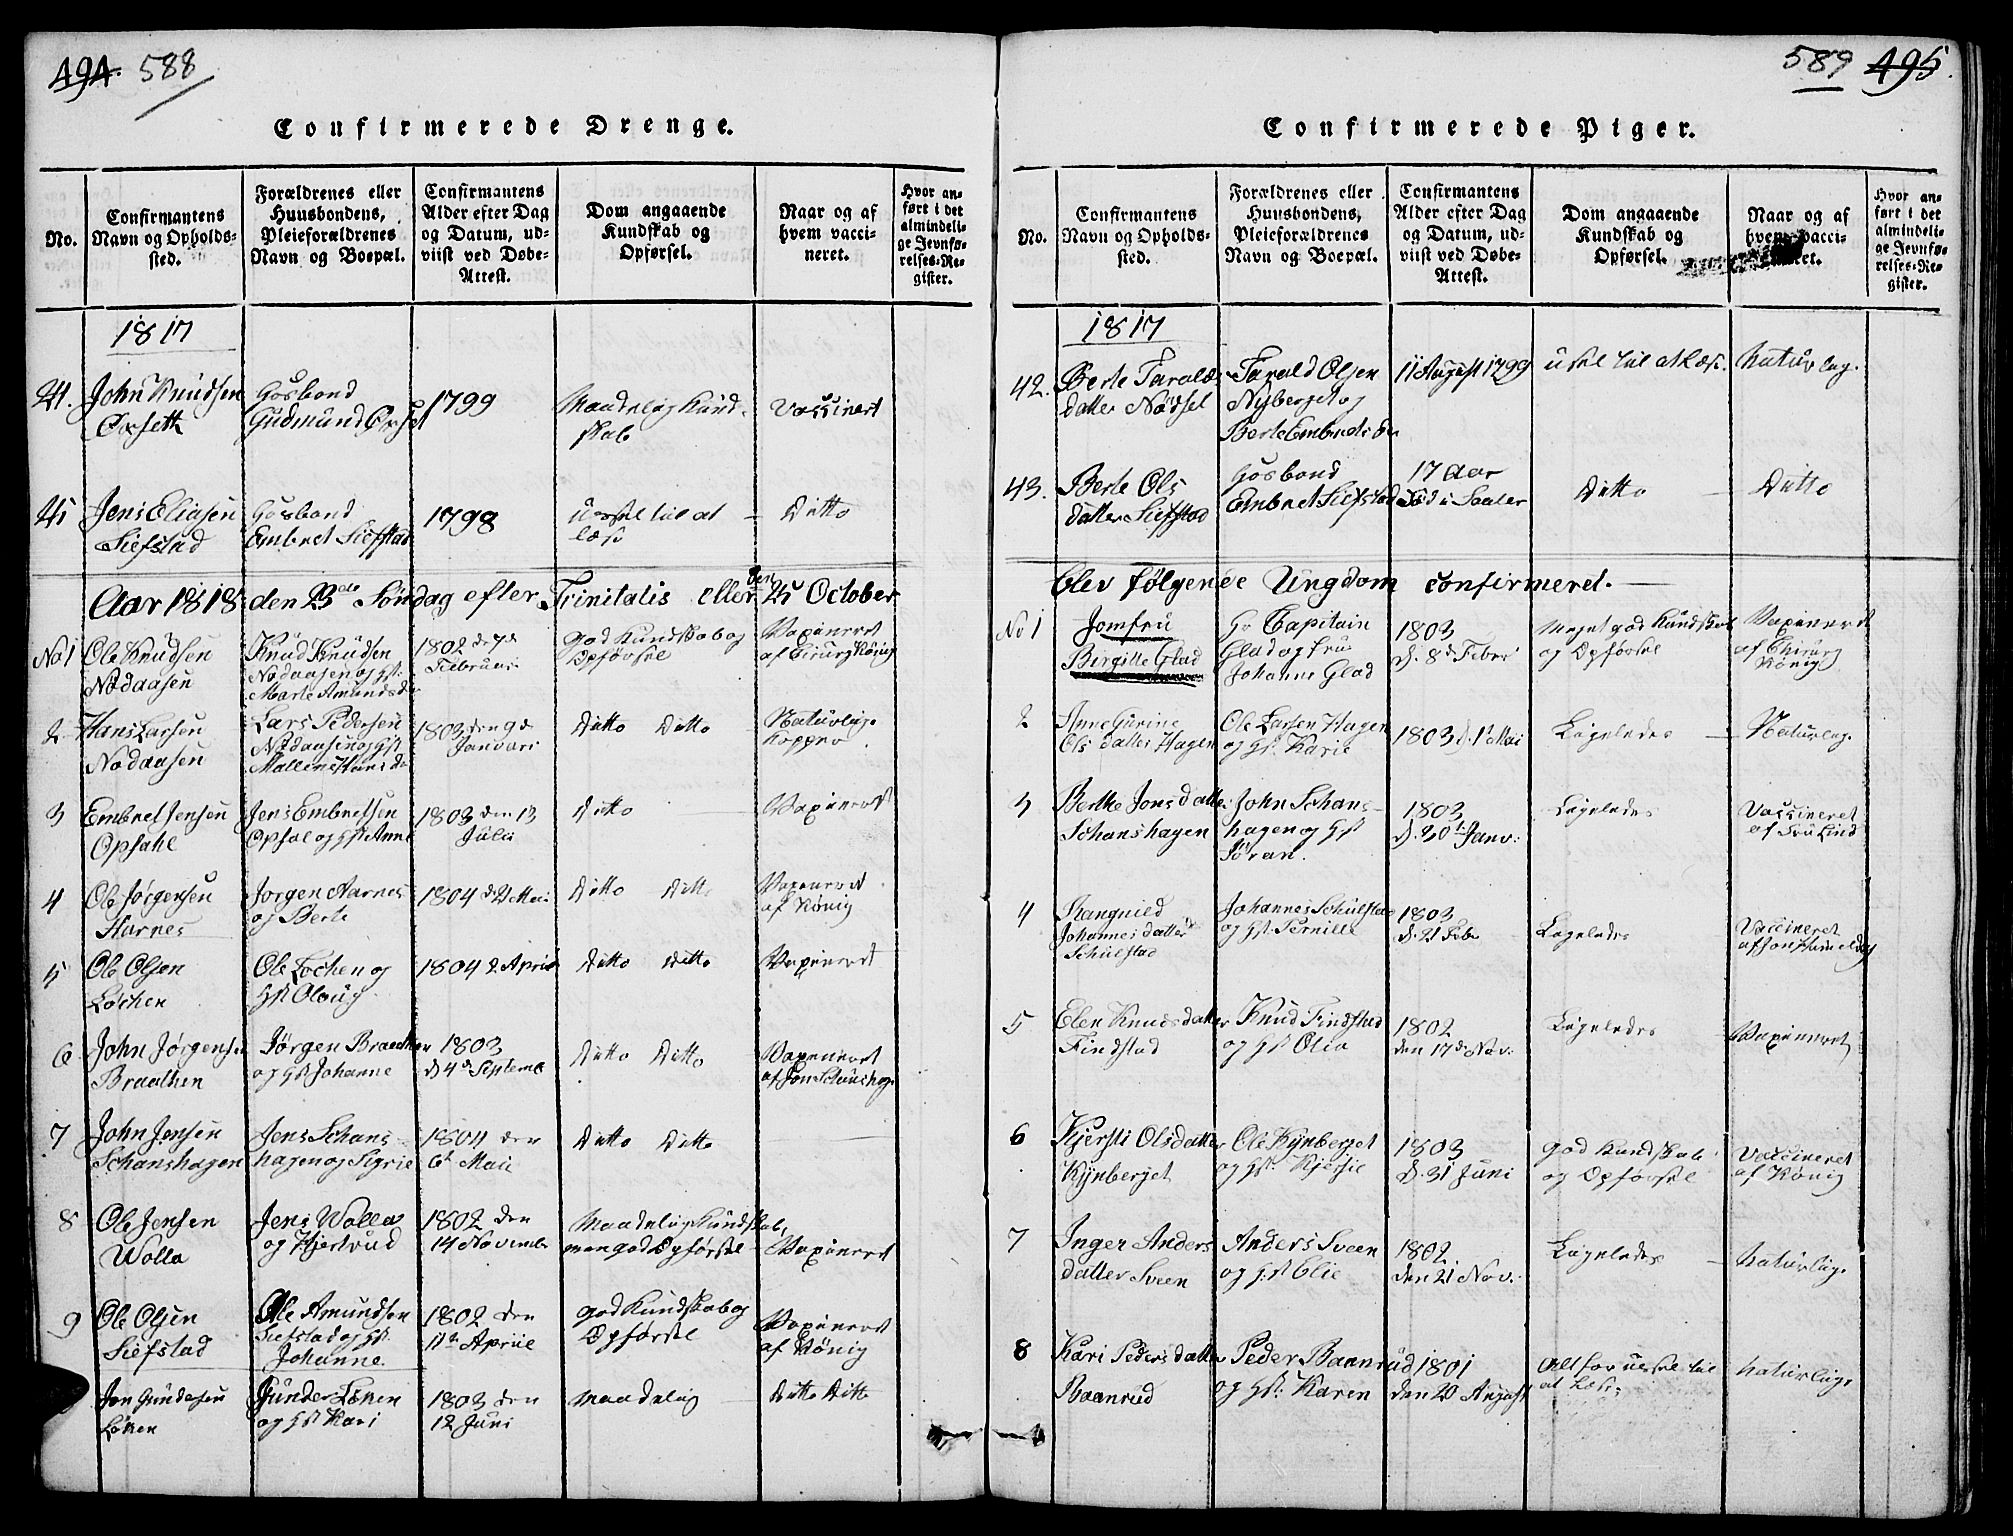 494. 588
Confirmerede Drenge.
No.
Confirmantens
Navn og Opholds-
sted.
Forældrenes eller
Huusbondens,
Pleieforældrenes
Navn og Boepæl.
Confirmantens
Alder efter Dag
og Datum, ud-
viist ved Døbe-
Attest.
Dom angaaende
Kundskab og
Opførsel.
Naar og af
hvem vacci-
neret.
Hvor an-
ført i det
almindeli-
ge Jevnfø-
relses-Re-
gister.
1817
24. John Knudsen
Oxseth
Gosbond
Gudmund Oxset
1799
Maadelig Kund-
skab
Vaccinert
25 Jens Eliasen
Siefstad
Gosbond
Embret Siefstad
1798
ussel til at
læse
Ditto
Aar 1818 den 23de Søndag efter Trinitatis eller den 25 October
No 1 Ole Knudsen
Nodaasen
Knud Knudsen
Nodaasen og Hst:
Marte Amunds
1802 de 7de
Februar
god Kundskab og
Opførsel
Vaxineret
af Cirurg König
2 Hans Larsen
Nodaasen
Lars Pedersen
Nodaasen og Hst
Mallene Hans
1803 den 9de
Januari
Ditto Ditto
Naturlige
Kopper
3 Embret Jensen
Opsahl
Jens Embretsen
Opsal og Hst Anne
1803 den 13
Julii
Ditto
Vaxineret
4 Ole Jørgensen
Harnes
Jorgen Aarnes
og Berte
1804 d 2 Mai
Ditto Ditto
Vaxineret
af König
5 Ole Olsen
Løchen
Ole Løchen og
Hst Oloug
1804 2 April
Ditto Ditto
Vaxineret
6 John Jørgensen
Braathen
Jörgen Braathen
og Hst Johanne
1803
d 4de Septemb
Ditto Ditto
Vaxineret
af Jon Schanshag
7 John Jensen
Schanshagen
Jens Schans-
hagen og Sigrie
1804 den
6t Maii
Ditto Ditto
8 Ole Jensen
Wolla
Jens Wolla
og Hjertrud
1802 den
14 Novemb
Maadelig Kundskab,
men god Opførsel
Vaxineret
9 Ole Olsen
Siefstad
Ole Amundsen
Siefstad og Hst.
Johanne.
1802 den
11te Aprili
god Kundskab og
Opførsel
Vaxineret
af König
Jon Gundersen
Løken
Gunder Löken
og Hst Kari
1803 den
12 Juni
Maadelig
Ditto Ditto
589 495.
Confirmerede Piger.
No.
Confirmantens
Navn og Opholds-
sted.
Forældrenes eller
Huusbondens,
Pleieforældrenes
Navn og Boepæl.
Confirmantens
Alder efter Dag
og Datum, ud-
viist ved Døbe-
Attest.
Dom angaaende
Kundskab og
Opførsel.
Naar og af
hvem vacci-
neret.
Hvor an-
ført i det
almindeli-
ge Jevnfø-
relses-Re-
gister.
1817
42. Berte Taralds
datter Nodsel
Tarald Olsen
Nyberget og
Berte Embrets
11 August 1799
ussel til at Læse.
Naturlig.
43. Berte Ols
datter Siefstad
Gosbond
Embret Siefstad
17 Aar
Fød i Soeler
Ditto
Ditto
blev følgende Ungdom confirmeret.
No 1 Jomfru
Birgitte Glad
Hr Capitain
Glad og Fru
Johanne Glad
1803
d. 8de Feber
Meget god Kundskab
og Opførsel
Vaxineret
af Chirurg
König
2 Anne Gurine
Ols datter Hagen
Ole Larsen Hagen
og Hst. Karie
1803 d. 1t Mai
Ligeledes
Naturlig.
3 Berthe Jonsdatter
Schanshagen
John Schans-
hagen og Hst
Jöran.
1803
d. 20t Janv:
Ligeledes
Vaccineret
af Fru Lind
4 Rangnied
Johannesdatter
Schulstad
Johannes Schulstad
og Hst. Pernille
1803
d. 21 Febr
Ligeledes
Vaccineret
5 Elen Knudsdatter
Findstad
Knud Findstad
og Hst Olia
1802
den 17de Nov:
Ligeledes
Vaxineret
6 Kjersti Olsdatter
Kynberget
Ole Kynberget
og Hst. Kjersie
1803
d. 31 Juni
god Kundskab
og Opførsel
Vaccineret
af König
7 Inger Anders
datter Sveen
Anders Sveen
og Hst Elie
1802
den 21 Nov.
Ligeledes
Naturlig.
8 Kari Peders datter
Baanrud
Peder Baanrud
og Hst: Karen
1801
den 20 August
Alt for ussel til
at Læse
Naturlig.